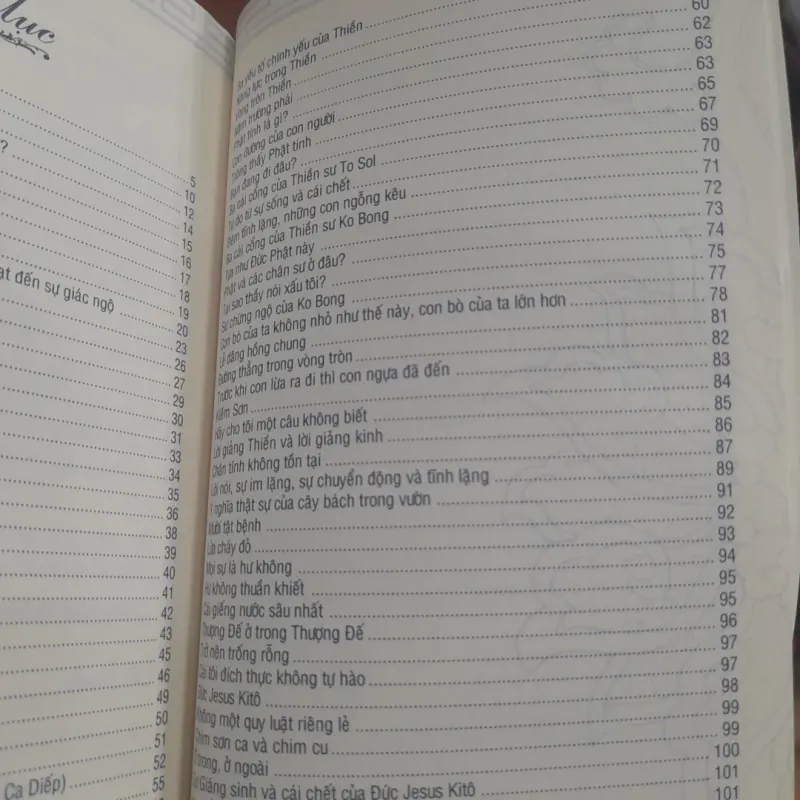 lục
5
?
10
12
14
15
16
17
18
ạt đến sự giác ngộ 19
20
23
26
27
29
30
31
33
34
35
36
38
39
40
41
42
43
45
46
49
50
51
52
Ca Diếp) 55
Ba yếu tố chính yếu của Thiền
Năng lực trong Thiền 60
Vòng tròn Thiền 62
Năm trường phái 63
Phật tính là gì? 63
Con đường của con người 65
Trông thấy Phật tính 67
Bạn đang đi đâu? 69
Ba cái cổng của Thiền sư To Sol 70
Tự do từ sự sống và cái chết 71
Đêm tĩnh lặng, những con ngỗng kêu 72
Ba cái cổng của Thiền sư Ko Bong 73
Tựa như Đức Phật này 74
Phật và các chân sư ở đâu? 75
Tại sao thầy nói xấu tôi? 77
Sự chứng ngộ của Ko Bong 78
Con bò của ta không nhỏ như thế này, con bò của ta lớn hơn 81
Lễ dâng hồng chung 82
Đường thẳng trong vòng tròn 83
Trước khi con lừa ra đi thì con ngựa đã đến 84
Kiềm Sơn 85
Hãy cho tôi một câu không biết 86
Lời giảng Thiền và lời giảng kinh 87
Chân tính không tồn tại 89
Lời nói, sự im lặng, sự chuyển động và tĩnh lặng 91
Ý nghĩa thật sự của cây bách trong vườn 92
Mười tật bệnh 93
Lửa cháy đỏ 94
Mọi sự là hư không 95
Hư không thuần khiết 95
Cái giếng nước sâu nhất 96
Thượng Đế ở trong Thượng Đế 97
Trở nên trống rỗng 97
Cái tôi đích thực không tự hào 98
Đức Jesus Kitô 99
Không một quy luật riêng lẻ 99
Chim sơn ca và chim cu 100
Ở trong, ở ngoài 101
Sự Giáng sinh và cái chết của Đức Jesus Kitô 101